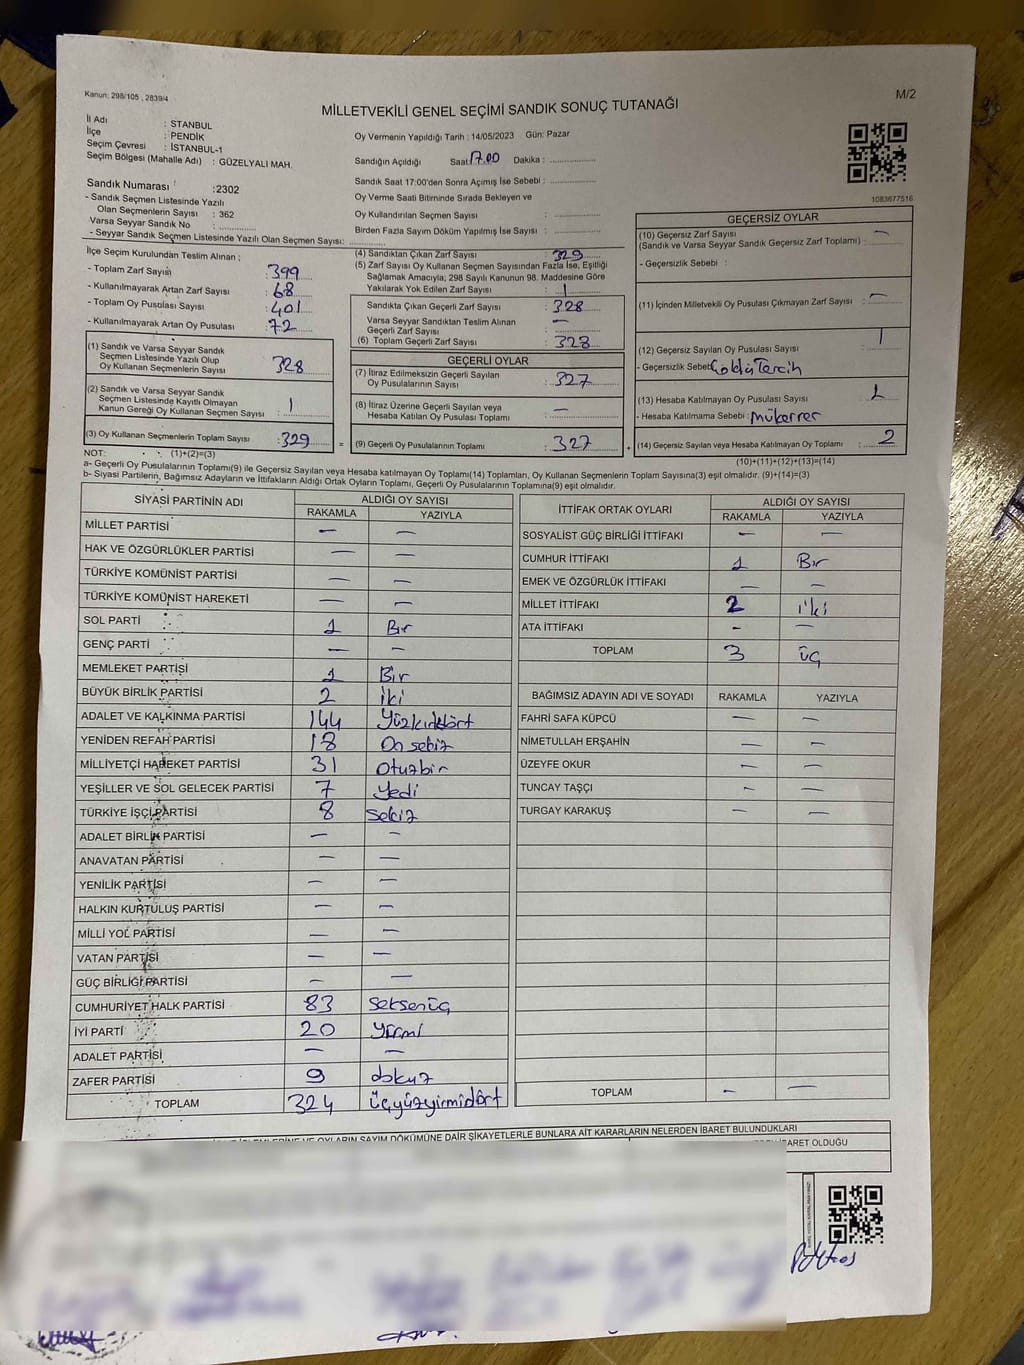 Kanun: 298/105 , 2839/4
M/2
MİLLETVEKİLİ GENEL SEÇİMİ SANDIK SONUÇ TUTANAĞI
İl Adı : STANBUL
İlçe : PENDİK
Seçim Çevresi : İSTANBUL-1
Seçim Bölgesi (Mahalle Adı) : GÜZELYALI MAH.
Sandık Numarası :2302
- Sandık Seçmen Listesinde Yazılı
Olan Seçmenlerin Sayısı : 362
Varsa Seyyar Sandık No :
- Seyyar Sandık Seçmen Listesinde Yazılı Olan Seçmen Sayısı:
Oy Vermenin Yapıldığı Tarih : 14/05/2023 Gün: Pazar
Sandığın Açıldığı Saat 17.00 Dakika :
Sandık Saat 17:00'den Sonra Açımış İse Sebebi :
Oy Verme Saati Bitiminde Sırada Bekleyen ve
Oy Kullandırılan Seçmen Sayısı :
Birden Fazla Sayım Döküm Yapılmış İse Sayısı :
1083677516
İlçe Seçim Kurulundan Teslim Alınan ;
- Toplam Zarf Sayısı : 399
- Kullanılmayarak Artan Zarf Sayısı : 68
- Toplam Oy Pusulası Sayısı : 401
- Kullanılmayarak Artan Oy Pusulası : 72
(1) Sandık ve Varsa Seyyar Sandık
Seçmen Listesinde Yazılı Olup
Oy Kullanan Seçmenlerin Sayısı : 328
(2) Sandık ve Varsa Seyyar Sandık
Seçmen Listesinde Kayıtlı Olmayan
Kanun Gereği Oy Kullanan Seçmen Sayısı : 1
(3) Oy Kullanan Seçmenlerin Toplam Sayısı : 329 =
(4) Sandıktan Çıkan Zarf Sayısı : 329
(5) Zarf Sayısı Oy Kullanan Seçmen Sayısından Fazla İse, Eşitliği
Sağlamak Amacıyla; 298 Sayılı Kanunun 98. Maddesine Göre
Yakılarak Yok Edilen Zarf Sayısı : 1
Sandıkta Çıkan Geçerli Zarf Sayısı : 328
Varsa Seyyar Sandıktan Teslim Alınan
Geçerli Zarf Sayısı : —
(6) Toplam Geçerli Zarf Sayısı : 328
GEÇERLİ OYLAR
(7) İtiraz Edilmeksizin Geçerli Sayılan
Oy Pusulalarının Sayısı : 327
(8) İtiraz Üzerine Geçerli Sayılan veya
Hesaba Katılan Oy Pusulası Toplamı : —
(9) Geçerli Oy Pusulalarının Toplamı : 327 +
GEÇERSİZ OYLAR
(10) Geçersiz Zarf Sayısı : —
(Sandık ve Varsa Seyyar Sandık Geçersiz Zarf Toplamı)
- Geçersizlik Sebebi :
(11) İçinden Milletvekili Oy Pusulası Çıkmayan Zarf Sayısı : —
(12) Geçersiz Sayılan Oy Pusulası Sayısı : 1
- Geçersizlik Sebebi: Çoklu Tercih
(13) Hesaba Katılmayan Oy Pusulası Sayısı : 1
- Hesaba Katılmama Sebebi : Mükerrer
(14) Geçersiz Sayılan veya Hesaba Katılmayan Oy Toplamı : 2
NOT: (1)+(2)=(3)
(10)+(11)+(12)+(13)=(14)
a- Geçerli Oy Pusulalarının Toplamı(9) ile Geçersiz Sayılan veya Hesaba katılmayan Oy Toplamı(14) Toplamları, Oy Kullanan Seçmenlerin Toplam Sayısına(3) eşit olmalıdır. (9)+(14)=(3)
b- Siyasi Partilerin, Bağımsız Adayların ve İttifakların Aldığı Ortak Oyların Toplamı, Geçerli Oy Pusulalarının Toplamına(9) eşit olmalıdır.
SİYASİ PARTİNİN ADI ALDIĞI OY SAYISI
RAKAMLA YAZIYLA
MİLLET PARTİSİ — —
HAK VE ÖZGÜRLÜKLER PARTİSİ — —
TÜRKİYE KOMÜNİST PARTİSİ — —
TÜRKİYE KOMÜNİST HAREKETİ — —
SOL PARTİ 1 Bir
GENÇ PARTİ — —
MEMLEKET PARTİSİ 1 Bir
BÜYÜK BİRLİK PARTİSİ 2 iki
ADALET VE KALKINMA PARTİSİ 144 Yüzkırkdört
YENİDEN REFAH PARTİSİ 18 On sekiz
MİLLİYETÇİ HAREKET PARTİSİ 31 Otuzbir
YEŞİLLER VE SOL GELECEK PARTİSİ 7 Yedi
TÜRKİYE İŞÇİ PARTİSİ 8 Sekiz
ADALET BİRLİK PARTİSİ — —
ANAVATAN PARTİSİ — —
YENİLİK PARTİSİ — —
HALKIN KURTULUŞ PARTİSİ — —
MİLLİ YOL PARTİSİ — —
VATAN PARTİSİ — —
GÜÇ BİRLİĞİ PARTİSİ — —
CUMHURİYET HALK PARTİSİ 83 Seksenüç
İYİ PARTİ 20 Yirmi
ADALET PARTİSİ — —
ZAFER PARTİSİ 9 dokuz
TOPLAM 324 üçyüzyirmidört
İTTİFAK ORTAK OYLARI ALDIĞI OY SAYISI
RAKAMLA YAZIYLA
SOSYALİST GÜÇ BİRLİĞİ İTTİFAKI — —
CUMHUR İTTİFAKI 1 Bir
EMEK VE ÖZGÜRLÜK İTTİFAKI — —
MİLLET İTTİFAKI 2 iki
ATA İTTİFAKI - —
TOPLAM 3 üç
BAĞIMSIZ ADAYIN ADI VE SOYADI RAKAMLA YAZIYLA
FAHRİ SAFA KÜPCÜ — —
NİMETULLAH ERŞAHİN — —
ÜZEYFE OKUR — —
TUNCAY TAŞÇI - —
TURGAY KARAKUŞ — —
TOPLAM - —
OYLARIN SAYIM DÖKÜMÜNE DAİR ŞİKAYETLERLE BUNLARA AİT KARARLARIN NELERDEN İBARET BULUNDUKLARI
OLDUĞU